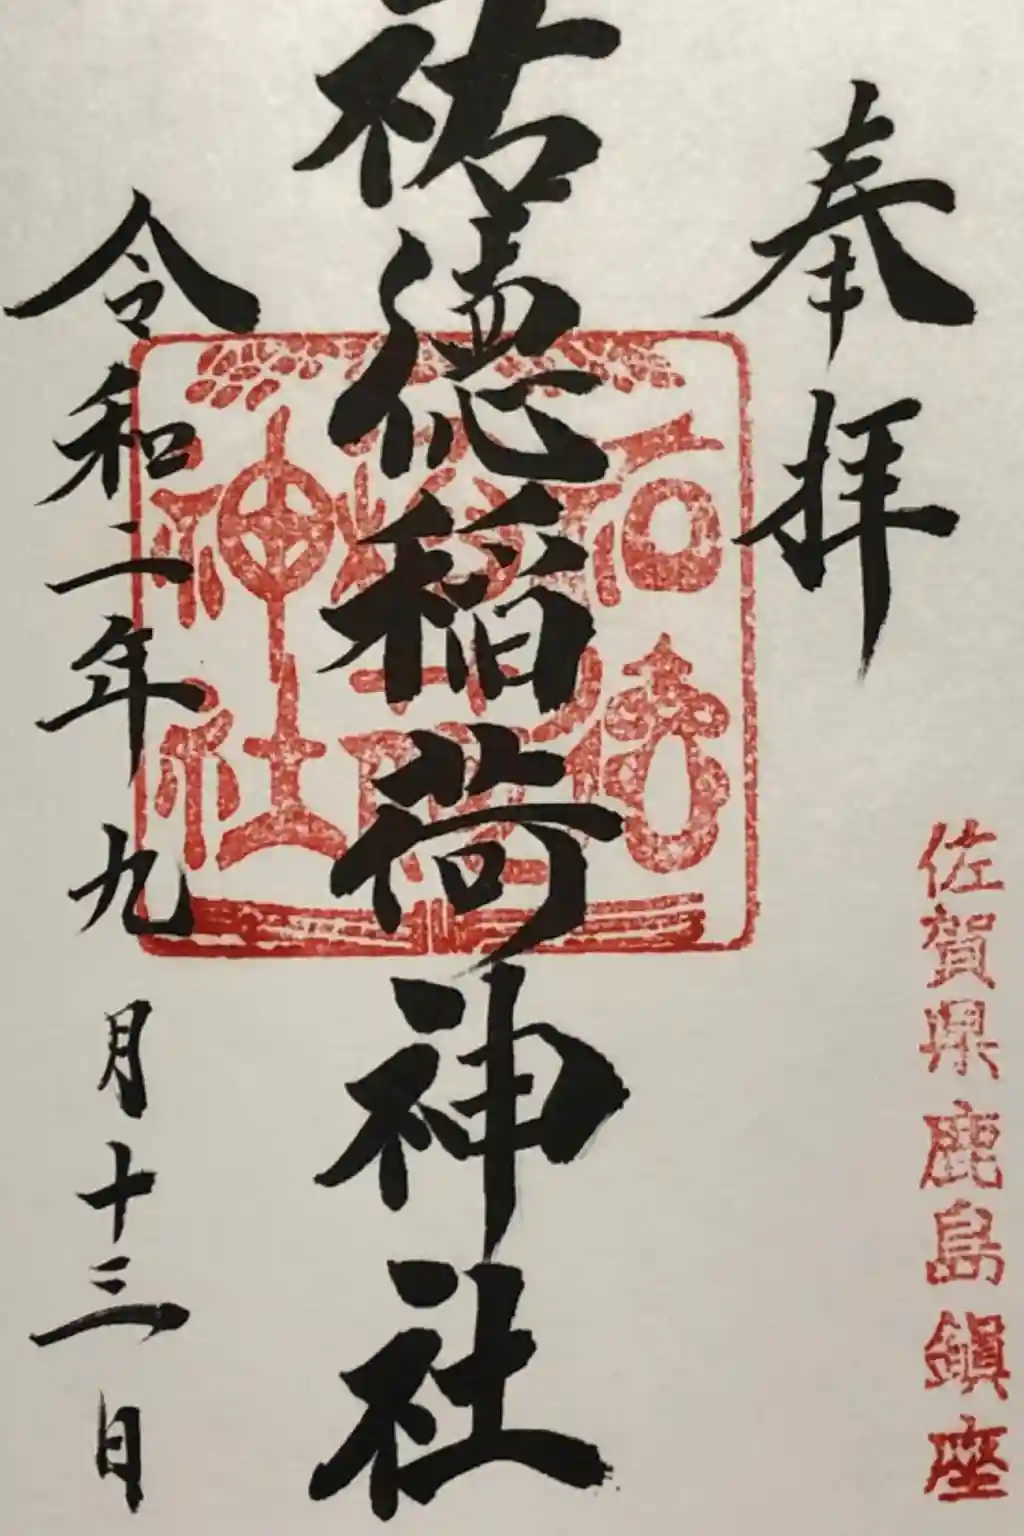 奉拝
佐賀県鹿島鎮座
祐徳稲荷神社
石
徳
神社
令和二年九月十三日